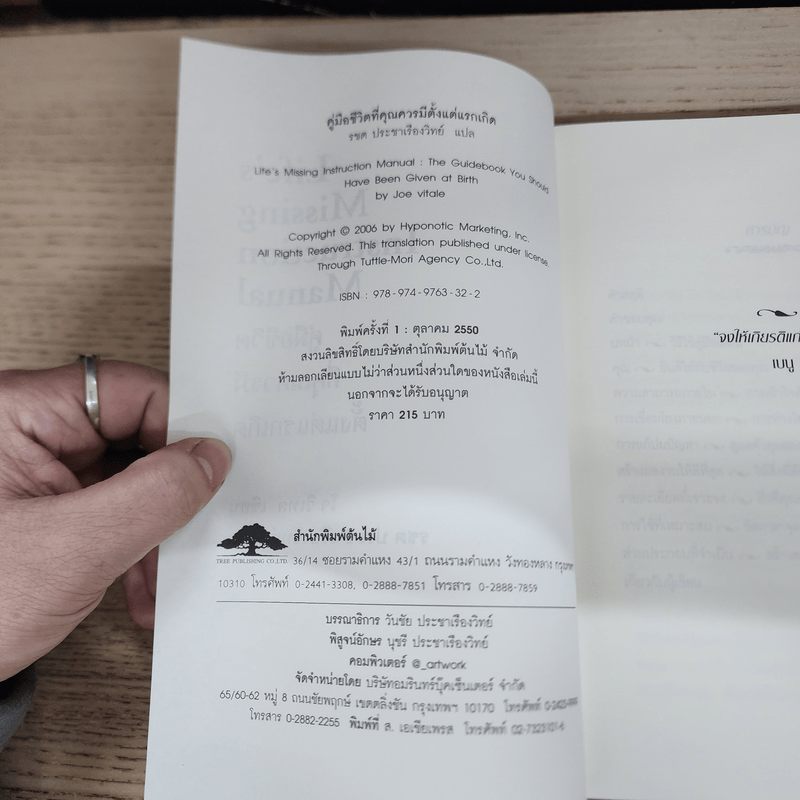 คู่มือชีวิตที่คุณควรมีตั้งแต่แรกเกิด
รชต ประชาเรืองวิทย์ แปล
Life's Missing Instruction Manual : The Guidebook You Should
Have Been Given at Birth
by Joe vitale
Copyright © 2006 by Hyponotic Marketing, Inc.
All Rights Reserved. This translation published under license.
Through Tuttle-Mori Agency Co.,Ltd.
ISBN : 978-974-9763-32-2
พิมพ์ครั้งที่ 1 : ตุลาคม 2550
สงวนลิขสิทธิ์โดยบริษัทสำนักพิมพ์ต้นไม้ จำกัด
ห้ามลอกเลียนแบบไม่ว่าส่วนหนึ่งส่วนใดของหนังสือเล่มนี้
นอกจากจะได้รับอนุญาต
ราคา 215 บาท
สำนักพิมพ์ต้นไม้
TREE PUBLISHING CO.,LTD.
36/14 ซอยรามคำแหง 43/1 ถนนรามคำแหง วังทองหลาง กรุงเทพฯ
10310 โทรศัพท์ 0-2441-3308, 0-2888-7851 โทรสาร 0-2888-7859
บรรณาธิการ วันชัย ประชาเรืองวิทย์
พิสูจน์อักษร นุชรี ประชาเรืองวิทย์
คอมพิวเตอร์ @_artwork
จัดจำหน่ายโดย บริษัทอมรินทร์บุ๊คเซ็นเตอร์ จำกัด
65/60-62 หมู่ 8 ถนนชัยพฤกษ์ เขตตลิ่งชัน กรุงเทพฯ 10170 โทรศัพท์
โทรสาร 0-2882-2255 พิมพ์ที่ ส. เอเชียเพรส โทรศัพท์
"จงให้เกียรติแก่
เบนู